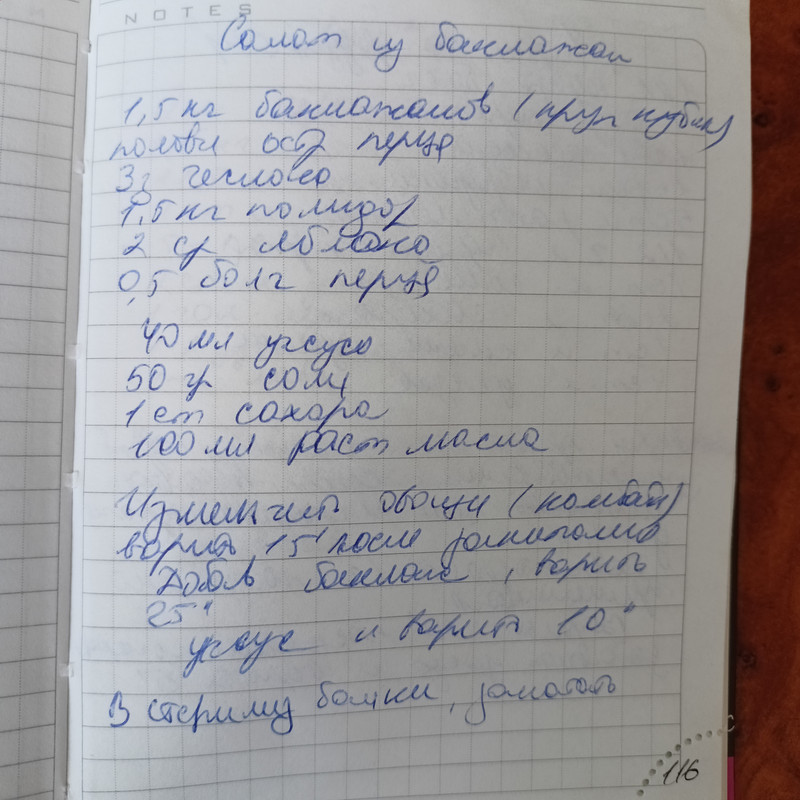 NOTES
Салат из баклажан
1,5 кг баклажанов (круп кубик)
полови остр перца
3 г чеснока
1,5 кг помидор
2 ср яблока
0,5 болг перца
40 мл уксуса
50 гр соли
1 ст сахара
100 мл раст масла
Измельчить овощи (комбайн)
варить 15' после закипания
Добав баклаж, варить
25"
уксус и варить 10"
В стерилиз банки, закатать
116